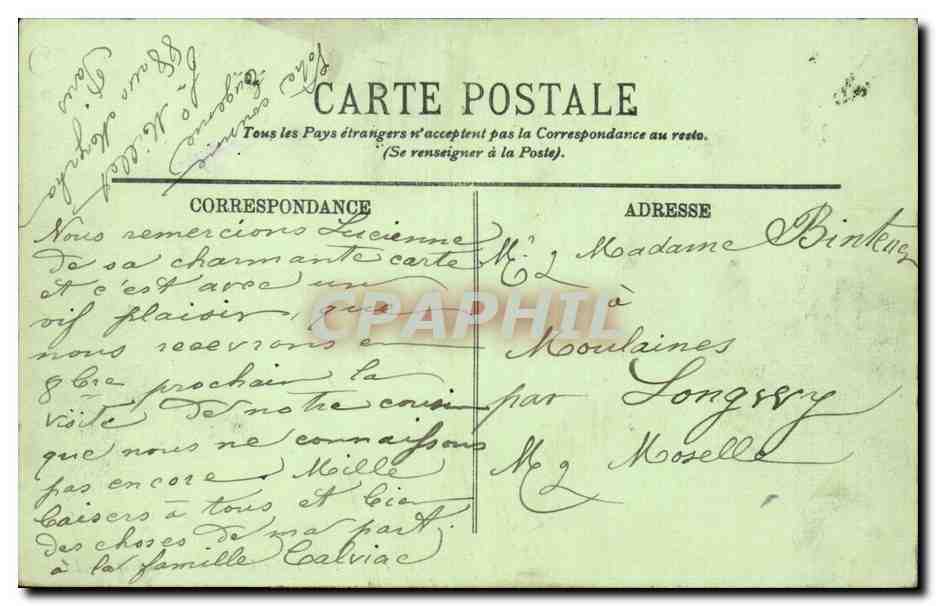 Votre
cousine
Eugénie
Millet
Paris
CARTE POSTALE
Tous les Pays étrangers n'acceptent pas la Correspondance au recto.
(Se renseigner à la Poste).
CORRESPONDANCE
Nous remercions Lucienne
de sa charmante carte
et c'est avec un
vif plaisir, que
nous recevrons en
8bre prochain la
visite de notre cousin
que nous ne connaissons
pas encore. Mille
baisers à tous et bien
des choses de ma part
à la famille Calviac
ADRESSE
Mr & Madame
à
Moulaines
par Longwy
M & Moselle
CPAPHIL